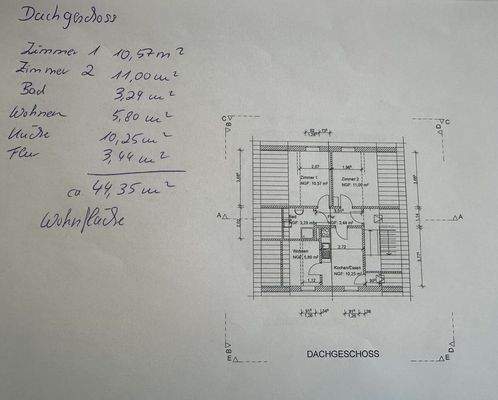 Dachgeschoss
Zimmer 1 10,57 m²
Zimmer 2 11,00 m²
Bad 3,29 m²
Wohnen 5,80 m²
Küche 10,25 m²
Flur 3,44 m²
ca 44,35 m²
Wohnfläche
C
B
C
D
2,67
1,96⁵
Zimmer 1
NGF: 10,57 m²
Zimmer 2
NGF: 11,00 m²
A
A
Bad
NGF: 3,29 m²
Flur
NGF: 3,44 m²
Wohnen
NGF: 5,80 m²
2,72
Kochen/Essen
NGF: 10,25 m²
1,12
B
E
D
E
DACHGESCHOSS